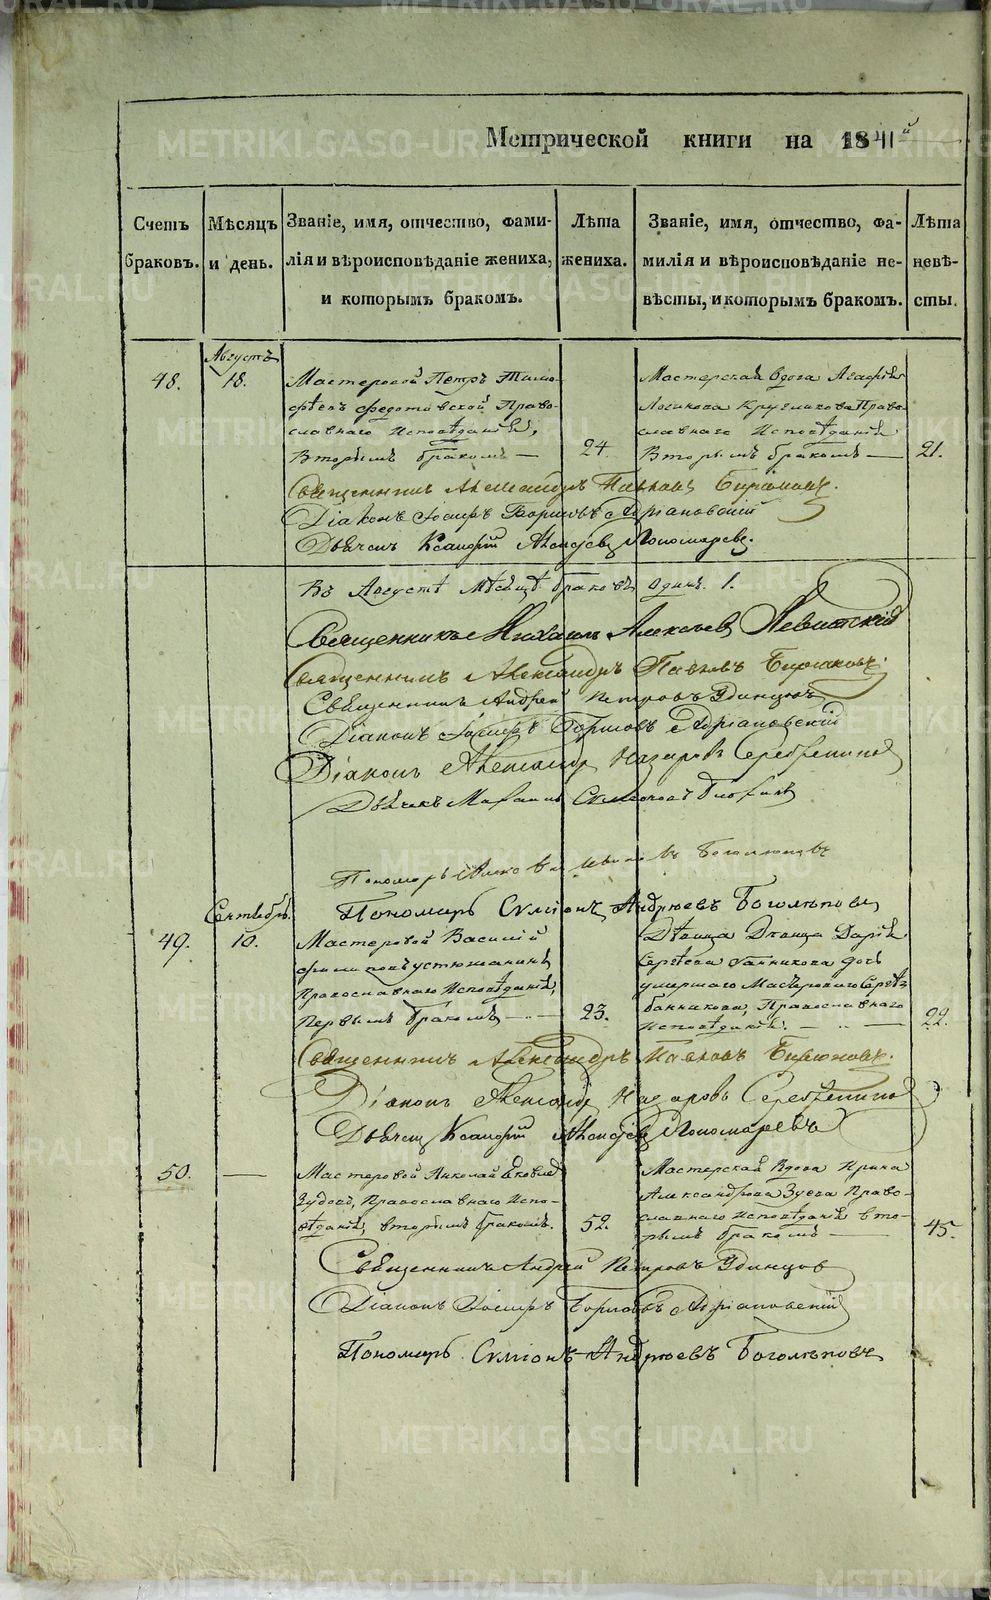 Метрической книги на 1841й
Счетъ браковъ.
Мѣсяцъ и день.
Званіе, имя, отчество, фами-
лія и вѣроисповѣданіе жениха,
и которымъ бракомъ.
Лѣта
жениха.
Званіе, имя, отчество, фа-
милія и вѣроисповѣданіе не-
вѣсты, и которымъ бракомъ.
Лѣта
невѣ-
сты.
48.
Августъ
18.
Мастеровой Петръ Тимо-
фѣевъ Федотовской, Право-
славнаго Исповѣданія,
Вторымъ бракомъ —
24.
Мастерская вдова Агафія
Логинова Кругликова Право-
славнаго Исповѣданія
Вторымъ бракомъ —
21.
Священникъ Александръ Павловъ Бирюковъ.
Діаконъ Іосифъ Борисовъ Адріановскій
Дьячекъ Ксанфій Алексѣевъ Пономаревъ.
Въ Августѣ Мѣсяцѣ браковъ Одинъ. 1.
Священникъ Михаилъ Алексѣевъ Левитскій
Священникъ Александръ Павловъ Бирюковъ.
Священникъ Андрей Петровъ Удинцовъ
Діаконъ Іосифъ Борисовъ Адріановскій
Діаконъ Александръ Назаровъ Серебренниковъ
Дьячекъ Михаилъ
Пономарь Боголѣповъ
Пономарь Симіонъ Андреевъ Боголѣповъ
49.
Сентябрь.
10.
Мастеровой Василій
Филиповъ Устюжанинъ
Православнаго Исповѣданія,
Первымъ бракомъ —
23.
Дѣвица Дарія
Сергѣева Банникова дочь
умершаго Мастероваго Сергѣя
Банникова, Православнаго
Исповѣданія. —
22.
Священникъ Александръ Павловъ Бирюковъ.
Діаконъ Александръ Назаровъ Серебренниковъ
Дьячекъ Ксанфій Алексѣевъ Пономаревъ
50.
—
Мастеровой Николай Яковлевъ
Зудовъ, Православнаго Испо-
вѣданія, вторымъ бракомъ.
52.
Мастерская Вдова Ирина
Александрова Зуева Право-
славнаго Исповѣданія вто-
рымъ бракомъ —
45.
Священникъ Андрей Петровъ Удинцовъ
Діаконъ Іосифъ Борисовъ Адріановскій
Пономарь Симіонъ Андреевъ Боголѣповъ
METRIKI.GASO-URAL.RU